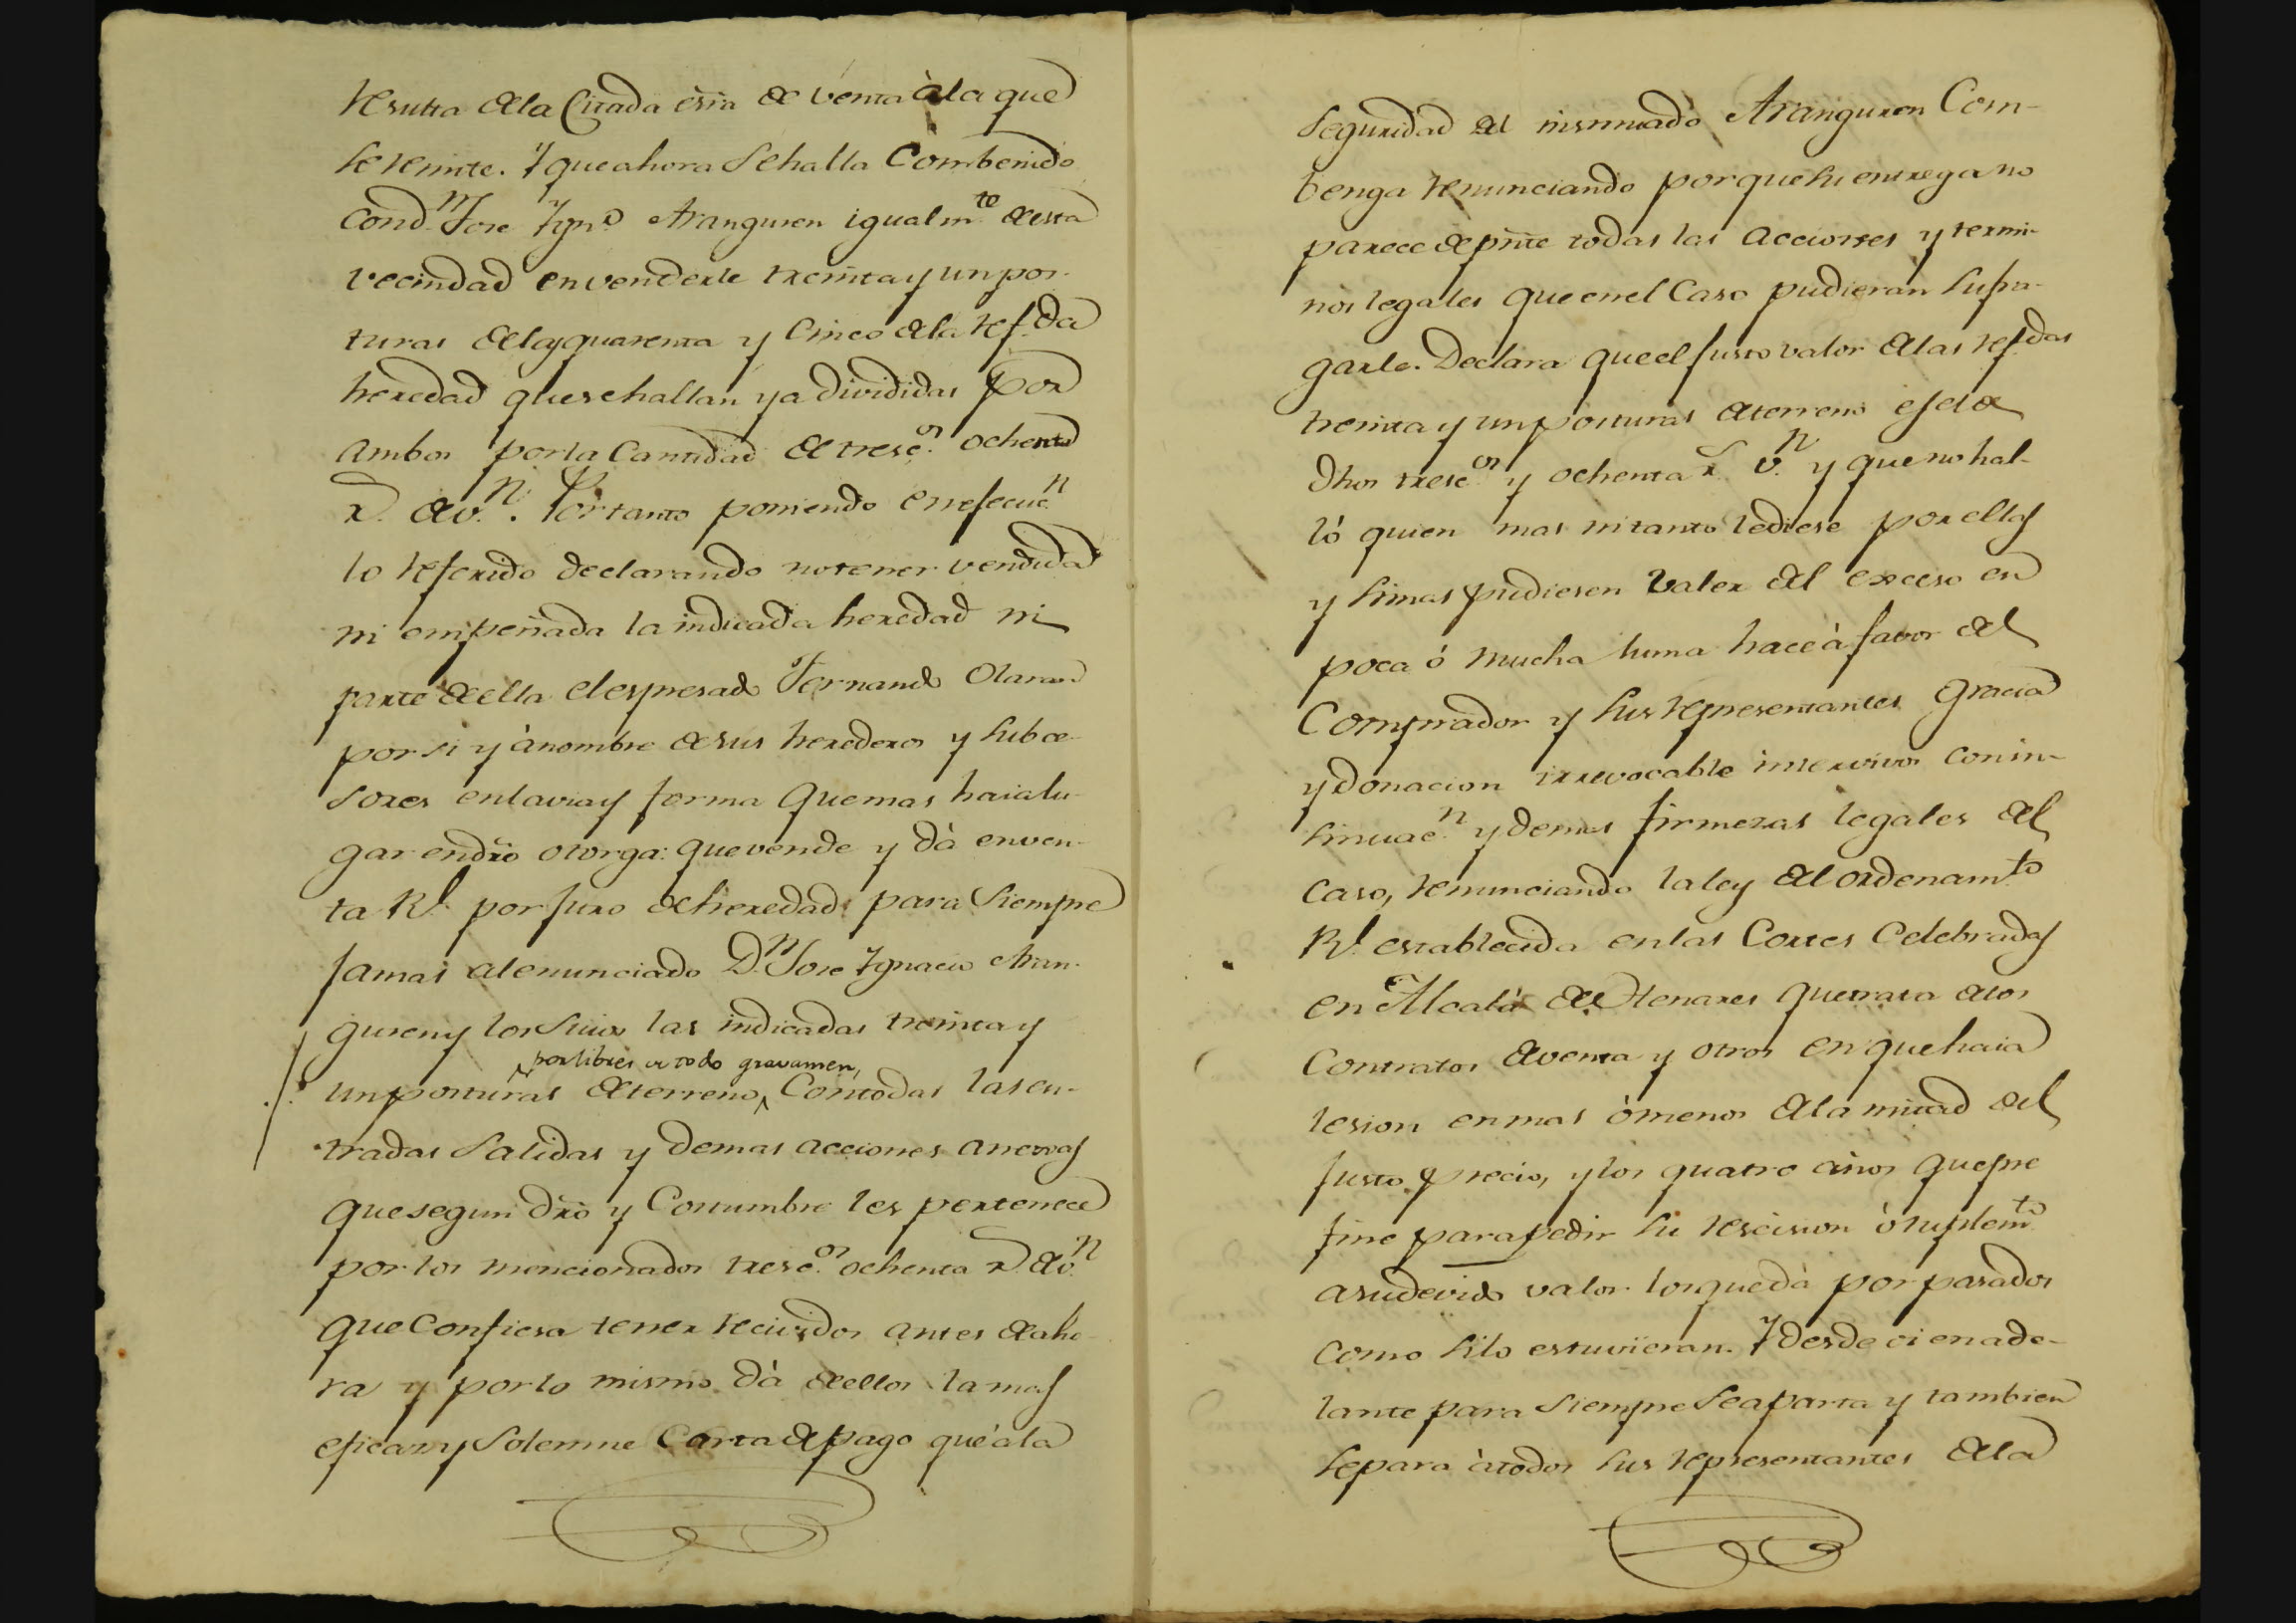 resulta de la Citada esrra de venta à la que
se remite. Y que ahora se halla Combenido
con Dn Jose Ygno Aranguren igualmte de esta
vecindad en venderle treinta y un pos-
turas de las quarenta y Cinco de la refda
heredad que se hallan ya divididas por
ambos por la Cantidad de tresc.os ochenta
r.s de v.n Por tanto poniendo en ejecuc.n
lo referido declarando no tener vendida
ni empeñada la indicada heredad ni
parte de ella el espresado Fernando Olaran
por si y à nombre de sus herederos y subce-
sores en la via y forma que mas haia lu-
gar en dro otorga: que vende y dà en ven-
ta Rl por juro de heredad para siempre
jamas al enunciado D.n Jose Ygnacio Aran-
guren y los suios las indicadas treinta y
por libres de todo gravamen,
un posturas de terreno, Con todas las en-
tradas salidas y demas acciones anexas
que segun dro y Costumbre les pertenece
por los mencionados tresc.os ochenta r.s de v.n
que Confiesa tener recividos antes de aho-
ra y por lo mismo dà de ellos la mas
eficaz y solemne Carta de pago que à la
seguridad del insinuado Aranguren Com-
benga renunciando por que su entrega no
parece de pnte todas las acciones y termi-
nos legales que en el Caso pudieran sufra-
garle. Declara que el justo valor de las refdas
treinta y un posturas de terreno es el de
dhos tresc.os y ochenta r.s v.n y que no hal-
ló quien mas ni tanto le diese por ellas
y si mas pudiesen valer del exceso en
poca ó mucha suma hace à favor del
Comprador y sus representantes gracia
y donacion irrevocable inter vivos con in-
sinuac.n y demas firmezas legales del
caso, renunciando la ley del ordenamto
Rl establecida en las Cortes Celebradas
en Alcalá de Henares que trata de los
Contratos de venta y otros en que haia
lesion en mas ò menos de la mitad del
justo precio, y los quatro años que pre
fine para pedir su rescision ò suplemto
a su devido valor los que dà por pasados
como si lo estuvieran. Y desde oi en ade-
lante para siempre se aparta y tambien
separa à todos sus representantes de la